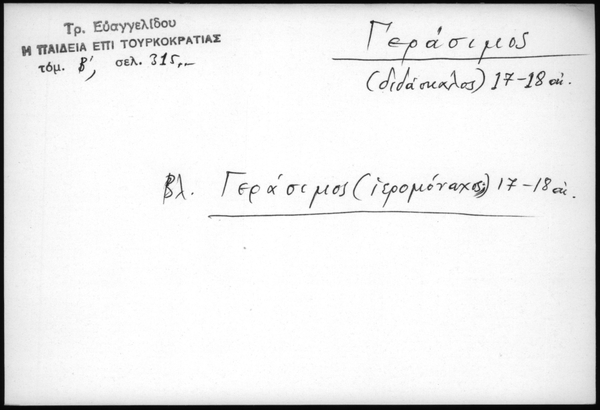 Τρ. Εὐαγγελίδου
Η ΠΑΙΔΕΙΑ ΕΠΙ ΤΟΥΡΚΟΚΡΑΤΙΑΣ
τόμ. Β', σελ. 315,-
Γεράσιμος
(διδάσκαλος) 17-18 αἰ.
Βλ. Γεράσιμος (ἱερομόναχος) 17-18 αἰ.